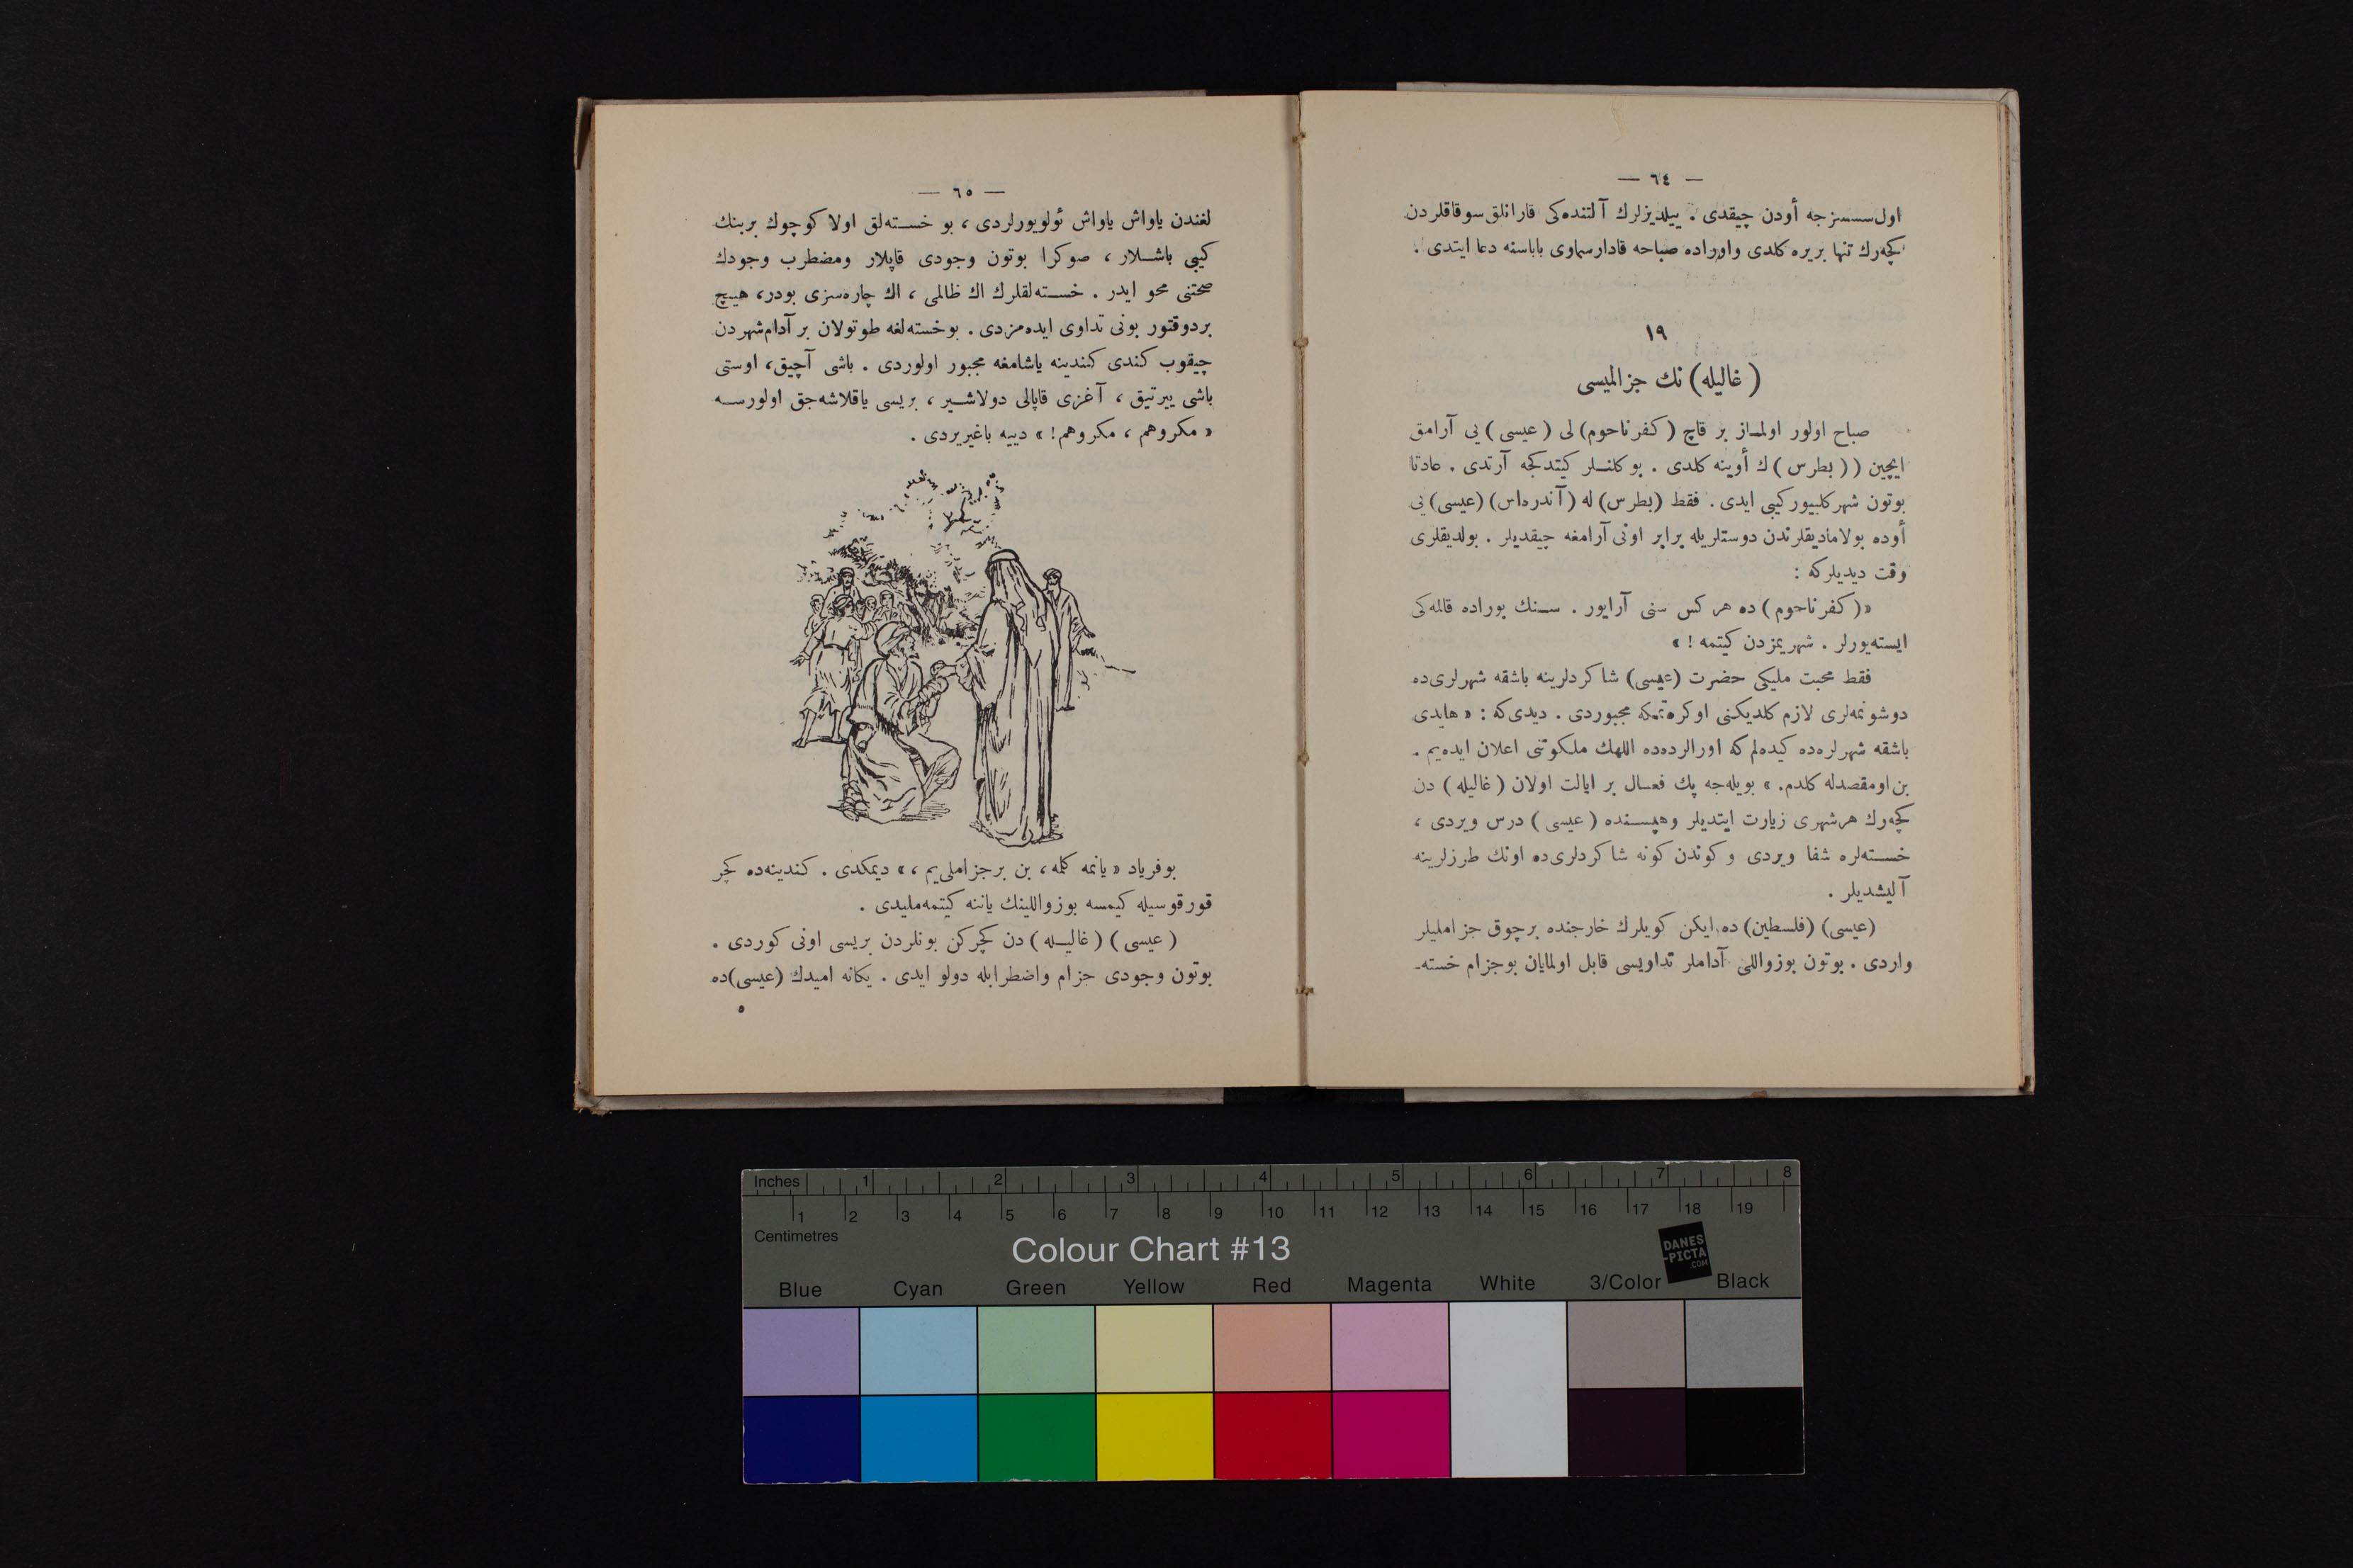 — ٦٤ —
اول سسسزجه أودن چيقدى . ييلديزلرك آلتنده‌كى قارانلق سوقاقلردن
كچه‌رك تنها بريره كلدى واوراده صباحه قادار سماوى باباسنه دعا ايتدى .
١٩
(غاليله) نك جزالميسى
صباح اولور اولماز بر قاچ (كفرناحوم) لى (عيسى) يى آرامق
ايچين ((بطرس)ك أوينه كلدى . بوكلنلر كيتدكجه آرتدى . عادتا
بوتون شهر كلييور كيبى ايدى . فقط (بطرس) له (آندره‌اس) (عيسى) يى
أوده بولاماديقلرندن دوستلريله برابر اونى آرامغه چيقديلر . بولديقلرى
وقت ديديلركه :
«(كفرناحوم) ده هركس سنى آرايور . سنك بوراده قالمه‌كى
ايسته‌يورلر . شهريمزدن كيتمه ! »
فقط محبت مليكى حضرت (عيسى) شاكردلرينه باشقه شهرلرى‌ده
دوشونمه‌لرى لازم كلديكنى اوكره‌تمكه مجبوردى . ديدى‌كه : « هايدى
باشقه شهرلره‌ده كيده‌لم كه اورالرده‌ده اللهك ملكوتنى اعلان ايده‌يم .
بن اومقصدله كلدم. » بويله‌جه پك فعال بر ايالت اولان (غاليله) دن
كچه‌رك هرشهرى زيارت ايتديلر وهپسنده (عيسى) درس ويردى ،
خسته‌لره شفا ويردى وكوندن كونه شاكردلرى‌ده اونك طرزلرينه
آليشديلر .
(عيسى) (فلسطين) ده ايكن كويلرك خارجنده برچوق جزامليلر
واردى . بوتون بوزواللى آداملر تداويسى قابل اولمايان بوجزام خسته-
— ٦٥ —
لغندن ياواش ياواش ئولويورلردى ، بو خسته‌لق اولا كوچوك بربنك
كيبى باشلار ، صوكرا بوتون وجودى قاپلار ومضطرب وجودك
صحتنى محو ايدر . خسته‌لقلرك اك ظالمى ، اك چاره‌سزى بودر، هيچ
بردوقتور بونى تداوى ايده‌مزدى . بوخسته‌لغه طوتولان بر آدام شهردن
چيقوب كندى كندينه ياشامغه مجبور اولوردى . باشى آچيق، اوستى
باشى ييرتيق ، آغزى قاپالى دولاشير ، بريسى ياقلاشه‌جق اولورسه
« مكروهم ، مكروهم! » دييه باغيريردى .
بوفرياد « يانمه كلمه ، بن برجزاملى‌يم ، » ديمكدى . كندينه‌ده كچر
قورقوسيله كيمسه بوزواللينك ياننه كيتمه‌مليدى .
(عيسى) (غاليله) دن كچركن بونلردن بريسى اونى كوردى .
بوتون وجودى جزام واضطرابله دولو ايدى . يكانه اميدك (عيسى)ده
٥
Inches 1 2 3 4 5 6 7 8
1 2 3 4 5 6 7 8 9 10 11 12 13 14 15 16 17 18 19
Centimetres
Colour Chart #13
DANES
-PICTA
.COM
Blue Cyan Green Yellow Red Magenta White 3/Color Black